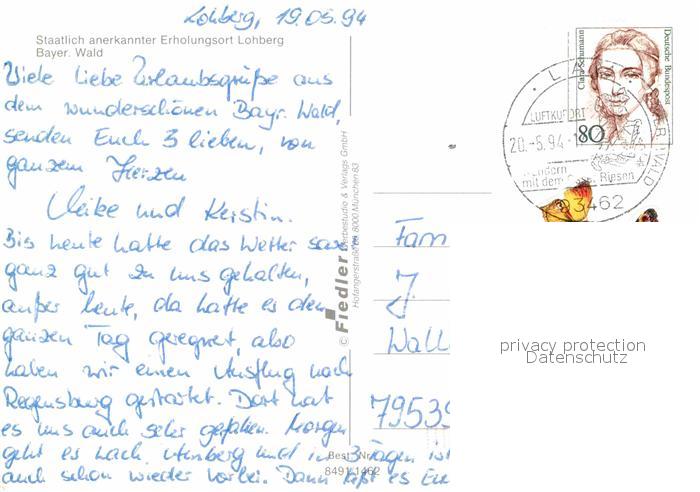 Lohberg, 19.05.94
Staatlich anerkannter Erholungsort Lohberg
Bayer. Wald
Viele liebe Urlaubsgrüße aus
dem wunderschönen Bayr. Wald,
senden Euch 3 lieben, von
ganzem Herzen
und Kerstin.
Bis heute hatte das Wetter
ganz gut zu uns gehalten,
außer heute, da hatte es den
ganzen Tag geregnet, also
haben wir einen Ausflug nach
Regensburg gestartet. Dort hat
es uns auch sehr gefallen. Morgen
geht es nach und in 3 Tagen ist
auch schon wieder vorbei. Dann
© Fiedler Werbestudio & Verlags GmbH
Hofangerstraße 8000 München 83
Best. Nr.
8491/1462
Clara Schumann
Deutsche Bundespost
80
LUFTKURORT
20.-5.94-1
mit dem Riesen
93462
Fam
J
Wall
79539
privacy protection
Datenschutz